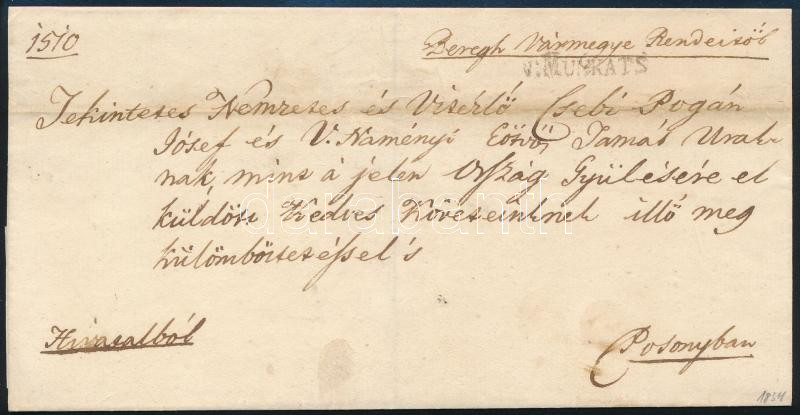 1510
Beregh Vármegye Rendeitöl
V: MUNKÁTS
Tekintetes Nemzetes és Vitézlö Csebi Pogán
Jósef és V. Naményi Eötvös Tamás Urak-
nak, mint à jelen Ország Gyülésére el
küldött Kedves Követeinknek illö meg
külömböztetéssel 's
darabanth
Hivatalból
Posonyban
1834